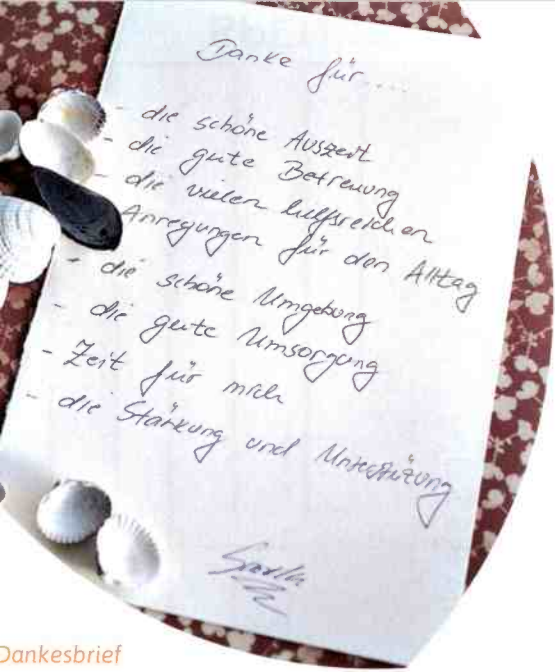 Danke für....
- die schöne Auszeit
- die gute Betreuung
- die vielen hilfsreichen
Anregungen für den Alltag
- die schöne Umgebung
- die gute Umsorgung
- Zeit für mich
- die Stärkung und Unterstüzung
Dankesbrief